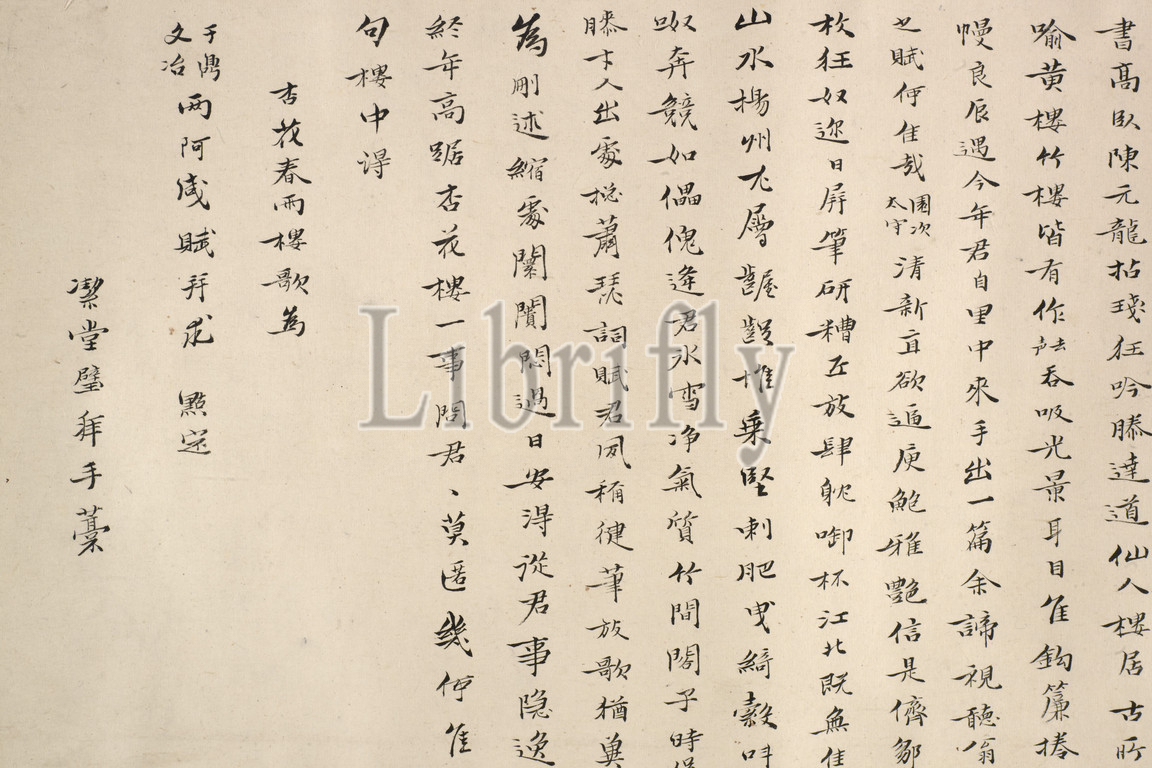 書高臥陳元龍拈琖狂吟滕達道仙人樓居古所
喻黃樓竹樓皆有作吞吸光景耳目佳鈎簾捲
幔良辰遇今年君自里中來手出一篇余諦視聽翁
也賦何佳哉園次太守清新直欲逼庾鮑雅艷信是儕鄒
枚狂奴迩日屏筆研糟丘放肆躭啣杯江北既無佳
山水楊州尤屬齷齪堆乗堅刺肥曳綺縠
奴奔競如傀逢君氷雪净氣質竹間閣子時
滕卞人出處總蕭瑟詞賦君夙稱健筆放歌猶冀
為刪述縮處闤闠悶過日安得從君事隐逸
終年高踞杏花樓一事問君、莫匿幾何佳
句樓中得
杏花春雨樓歌為
于鼎
文冶
兩阿咸賦拜求 點定
潔堂璧拜手藁
Librifly